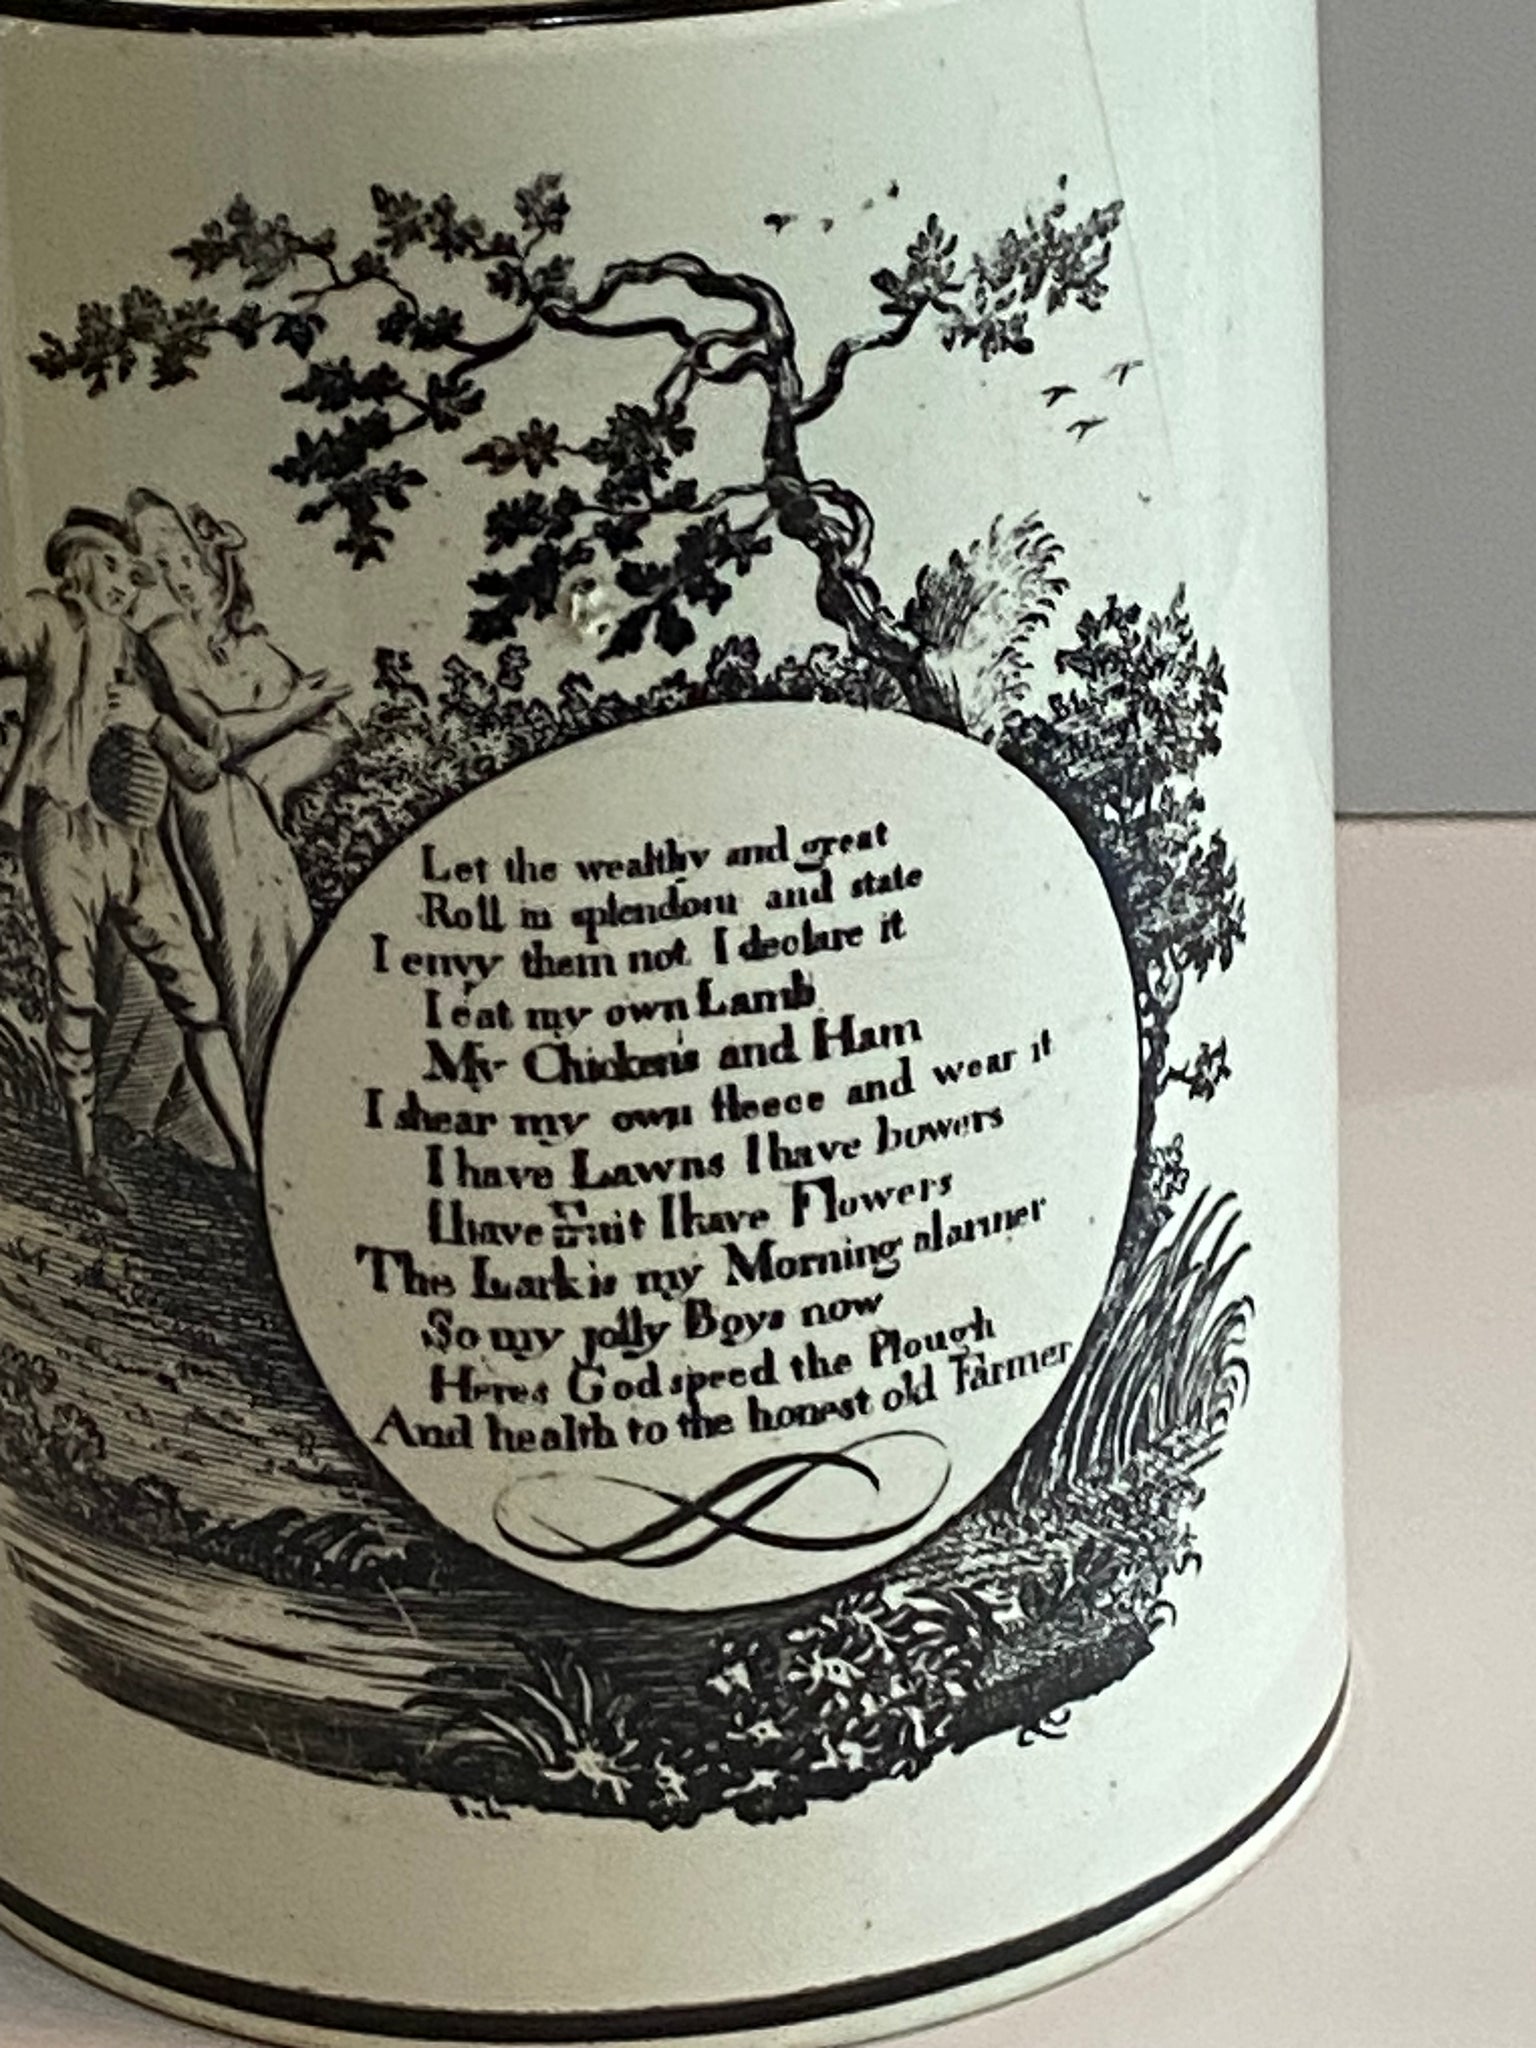 Let the wealthy and great
Roll in splendour and state
I envy them not I declare it
I eat my own Lamb
My Chickens and Ham
I shear my own fleece and wear it
I have Lawns I have bowers
I have Fruit I have Flowers
The Lark is my Morning alarmer
So my jolly Boys now
Heres God speed the Plough
And health to the honest old Farmer